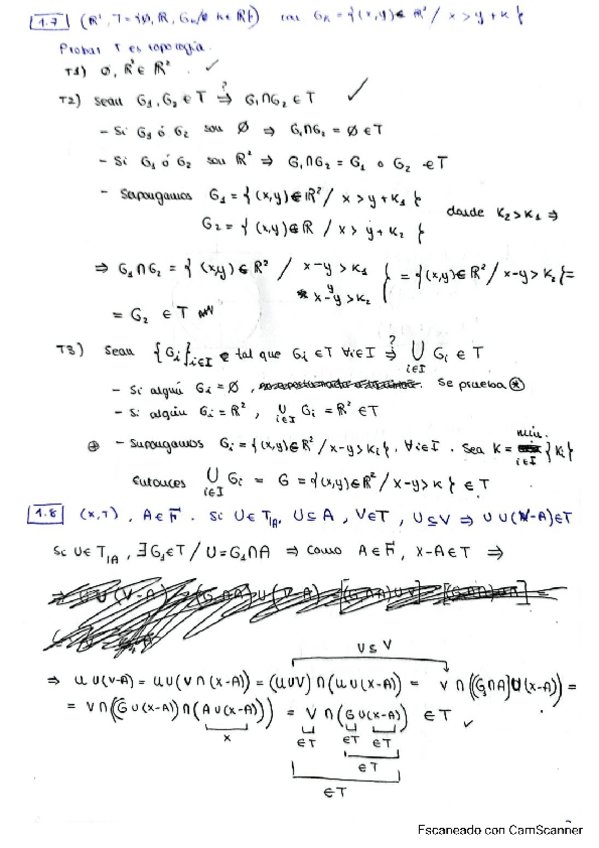 1.7 (R², T = {∅, R, G_k / k ∈ R}) con G_k = {(x,y) ∈ R² / x > y + k}
Probar T es topología.
T1) ∅, R² ∈ R². ✓
T2) Sean G₁, G₂ ∈ T ⇒? G₁∩G₂ ∈ T ✓
- Si G₁ ó G₂ son ∅ ⇒ G₁∩G₂ = ∅ ∈ T
- Si G₁ ó G₂ son R² ⇒ G₁∩G₂ = G₁ o G₂ ∈ T
- Supongamos G₁ = {(x,y) ∈ R² / x > y + k₁}
G₂ = {(x,y) ∈ R / x > y + k₂} donde k₂ > k₁ ⇒
⇒ G₁∩G₂ = {(x,y) ∈ R² / x-y > k₁ y x-y > k₂} = {(x,y) ∈ R² / x-y > k₂} =
= G₂ ∈ T
T3) Sean {G_i}_{i∈I} tal que G_i ∈ T ∀i∈I ⇒? ⋃_{i∈I} G_i ∈ T
- Si algún G_i = ∅, se prueba ⊛
- Si algún G_i = R², ⋃_{i∈I} G_i = R² ∈ T
⊛ - Supongamos G_i = {(x,y) ∈ R² / x-y > k_i}, ∀i∈I. Sea k = min_{i∈I} {k_i}
Entonces ⋃_{i∈I} G_i = G = {(x,y) ∈ R² / x-y > k} ∈ T
1.8 (X,T), A ∈ F. Si U ∈ T_{|A}, U ⊆ A, V ∈ T, U ⊆ V ⇒ U ∪ (V-A) ∈ T
Si U ∈ T_{|A}, ∃G₁ ∈ T / U = G₁∩A ⇒ como A ∈ F, X-A ∈ T ⇒
U ⊆ V
⇒ U ∪ (V-A) = U ∪ (V ∩ (X-A)) = (U∪V) ∩ (U ∪ (X-A)) = V ∩ ((G₁∩A) ∪ (X-A)) =
= V ∩ ((G ∪ (X-A)) ∩ (A ∪ (X-A))) = V ∩ (G ∪ (X-A)) ∈ T ✓
X ∈T ∈T ∈T
∈T
∈T
Escaneado con CamScanner